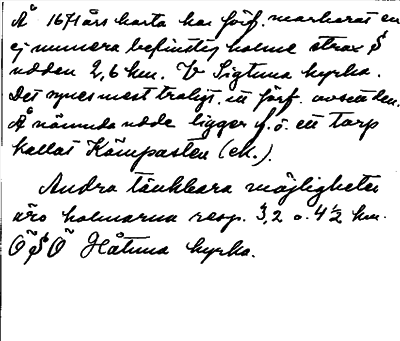 Å 1671 års karta har förf. markerat en
ej numera befintlig holme strax S
udden 2,6 km. V Sigtuna kyrka.
Det synes mest troligt, att förf. avsett den.
Å nämnda udde ligger f. ö. ett torp
kallat Kämpasten (ek.).
Andra tänkbara möjligheter
äro holmarna resp. 3,2 o. 4 ½ km.
OSO Håtuna kyrka.